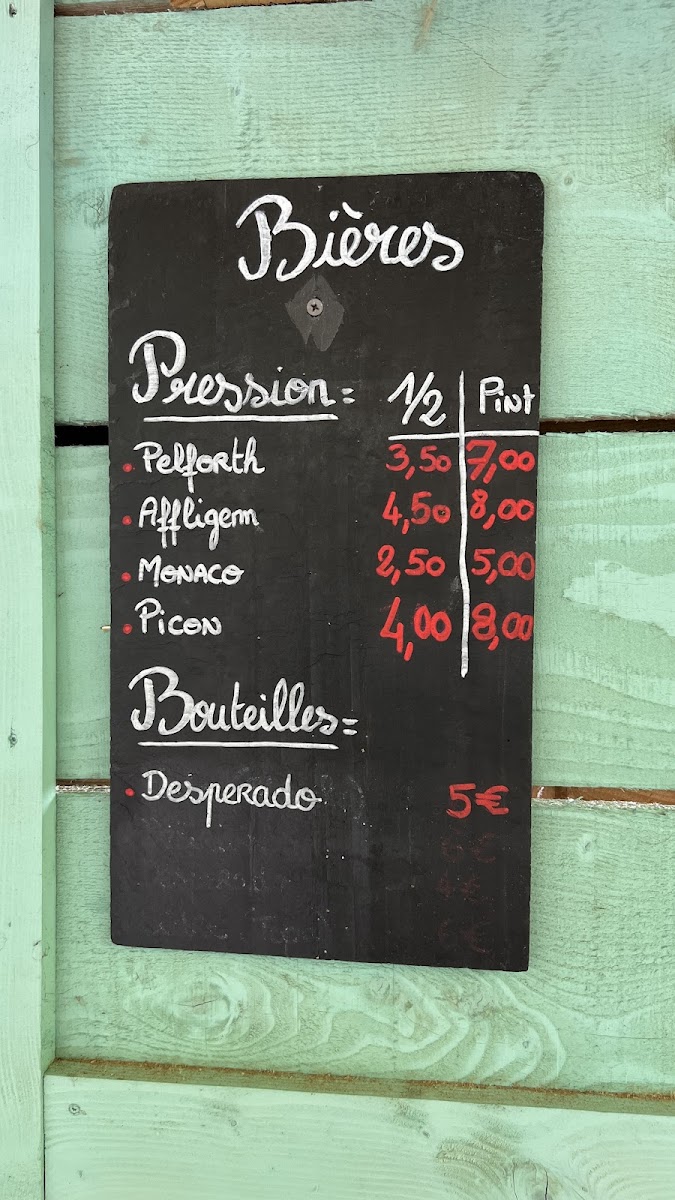 Bières
Pression = 1/2 Pint
• Pelforth 3,50 7,00
• Affligem 4,50 8,00
• Monaco 2,50 5,00
• Picon 4,00 8,00
Bouteilles =
• Desperado 5€